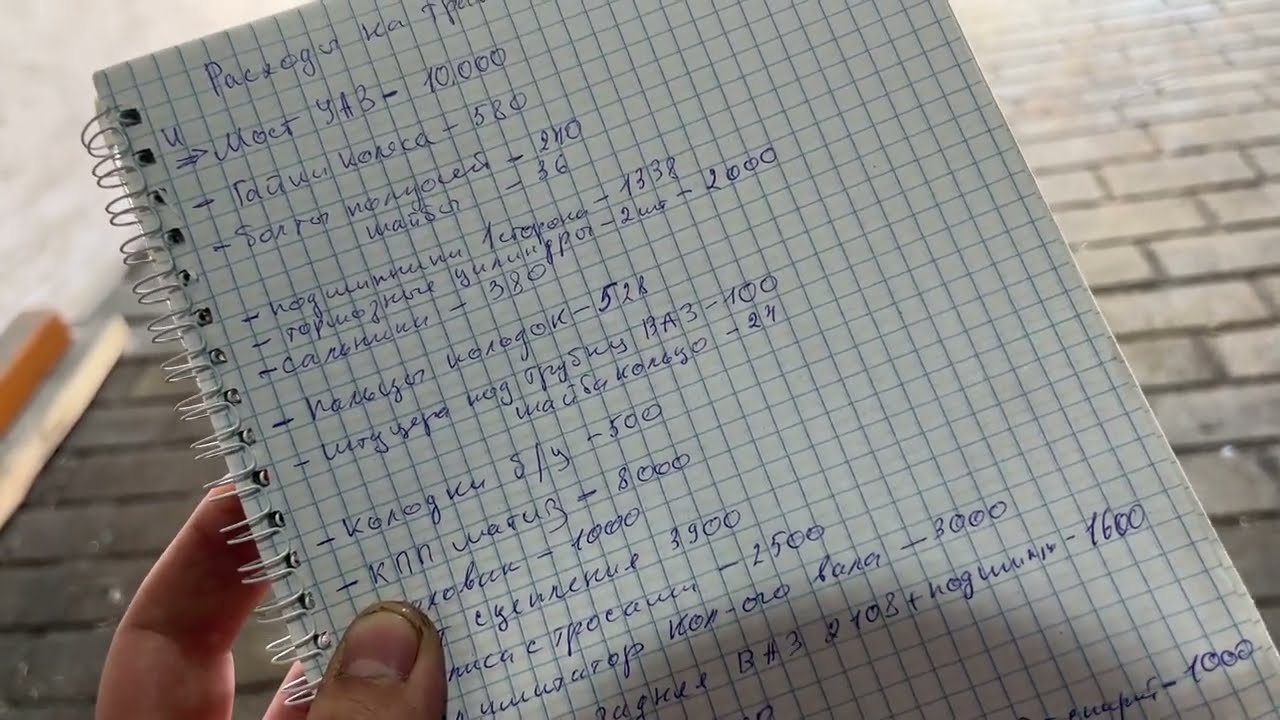 Расходы на
и
⇒ Мост УАЗ - 10.000
- Гайки колеса - 580
- болты полуосей - 240
шайбы - 36
- подшипники 1 сторона - 1338
- тормозные цилиндры - 2шт - 2000
- сальники - 380
- пальцы колодок - 528
- штуцера под трубки ВАЗ - 100
шайба кольцо - 24
- колодки б/у - 500
- КПП матиз - 8000
- 1000
сцепление 3900
с тросами - 2500
кол-ого вала - 3000
ВАЗ 2108 + подшипник - 1600
- 1000